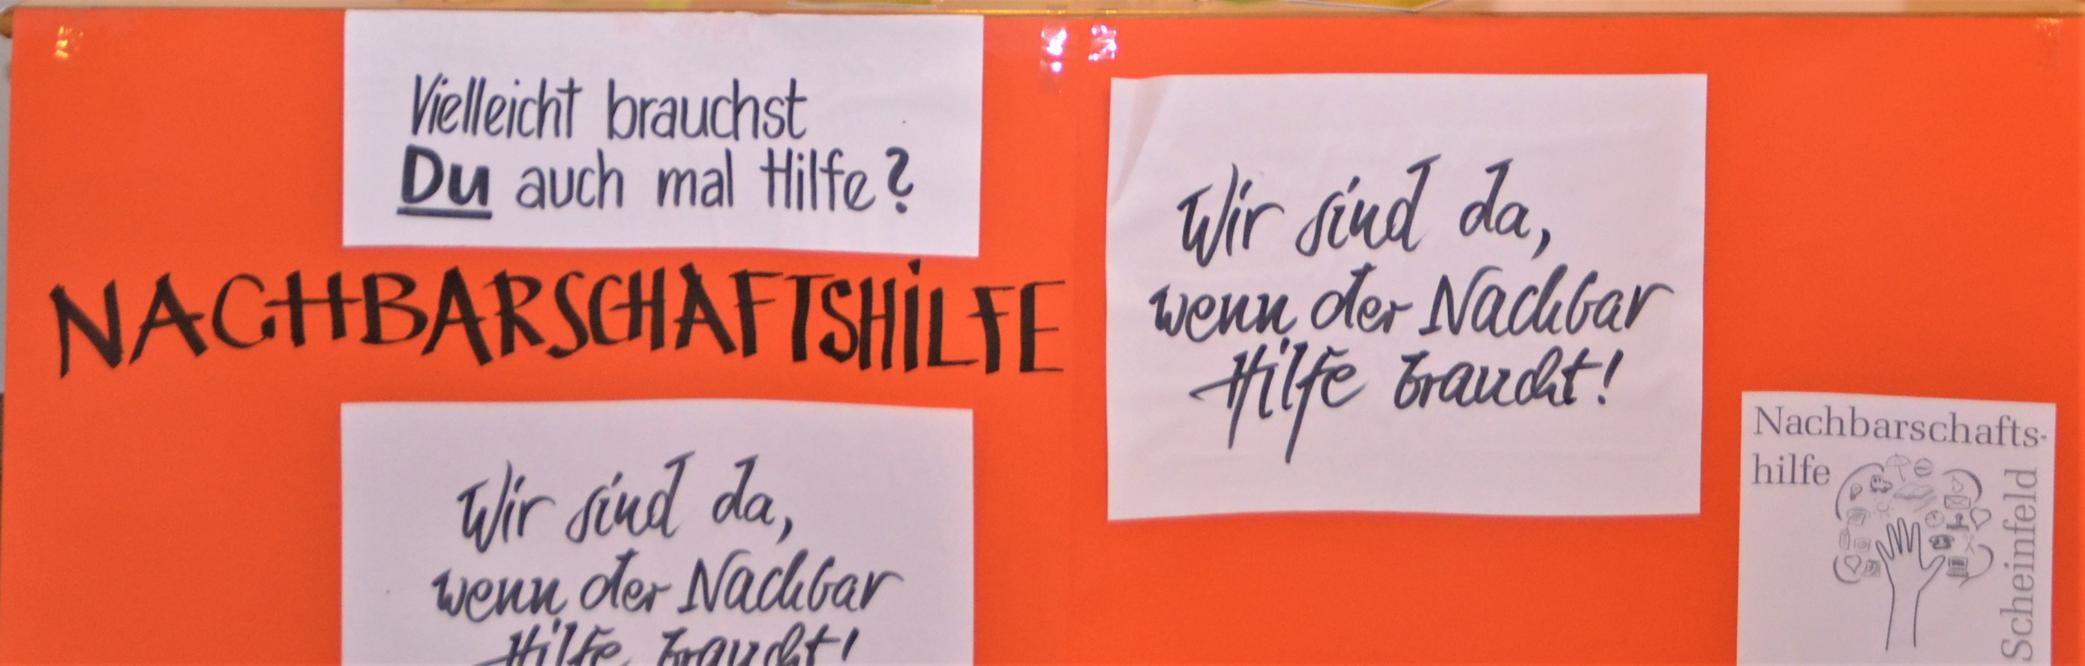 Vielleicht brauchst
Du auch mal Hilfe?
NACHBARSCHAFTSHILFE
Wir sind da,
wenn der Nachbar
Hilfe braucht!
Wir sind da,
wenn der Nachbar
Hilfe braucht!
Nachbarschafts-
hilfe
Scheinfeld